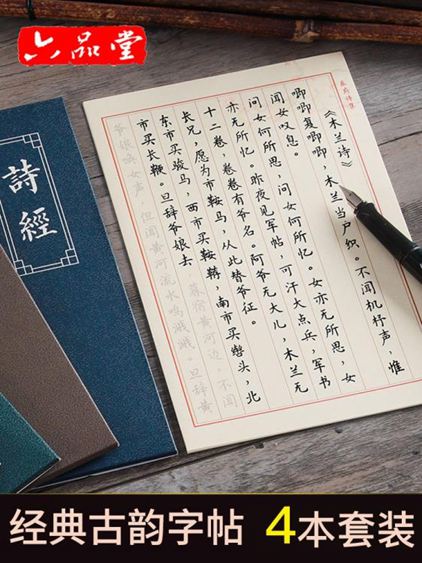 六品堂
詩經
《木兰诗》
唧唧复唧唧，木兰当户织。不闻机杼声，惟
闻女叹息。
问女何所思，问女何所忆。女亦无所思，女
亦无所忆。昨夜见军帖，可汗大点兵，军书
十二卷，卷卷有爷名。阿爷无大儿，木兰无
长兄，愿为市鞍马，从此替爷征。
东市买骏马，西市买鞍鞯，南市买辔头，北
市买长鞭。旦辞爷娘去，暮宿黄河边，不闻
爷娘唤女声，但闻黄河流水鸣溅溅。旦辞黄
经典古韵字帖 4本套装